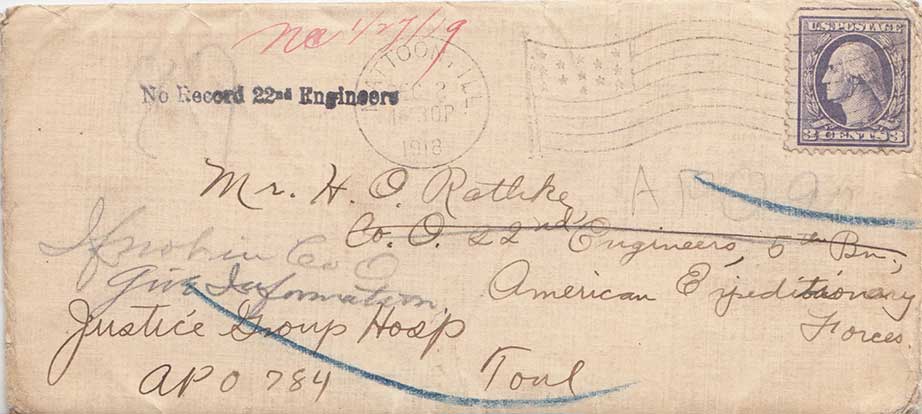 1/27/19
No Record 22nd Engineers
MATTOON, ILL.
30P
1918
U.S. POSTAGE
3 CENTS 3
Mr. H. O. Rathke
Co. O. 22nd Engineers, 5th Bn.,
American Expeditionary
Forces.
A P O
If not in Co O
Give Information
Justice Group Hosp
APO 784
Toul